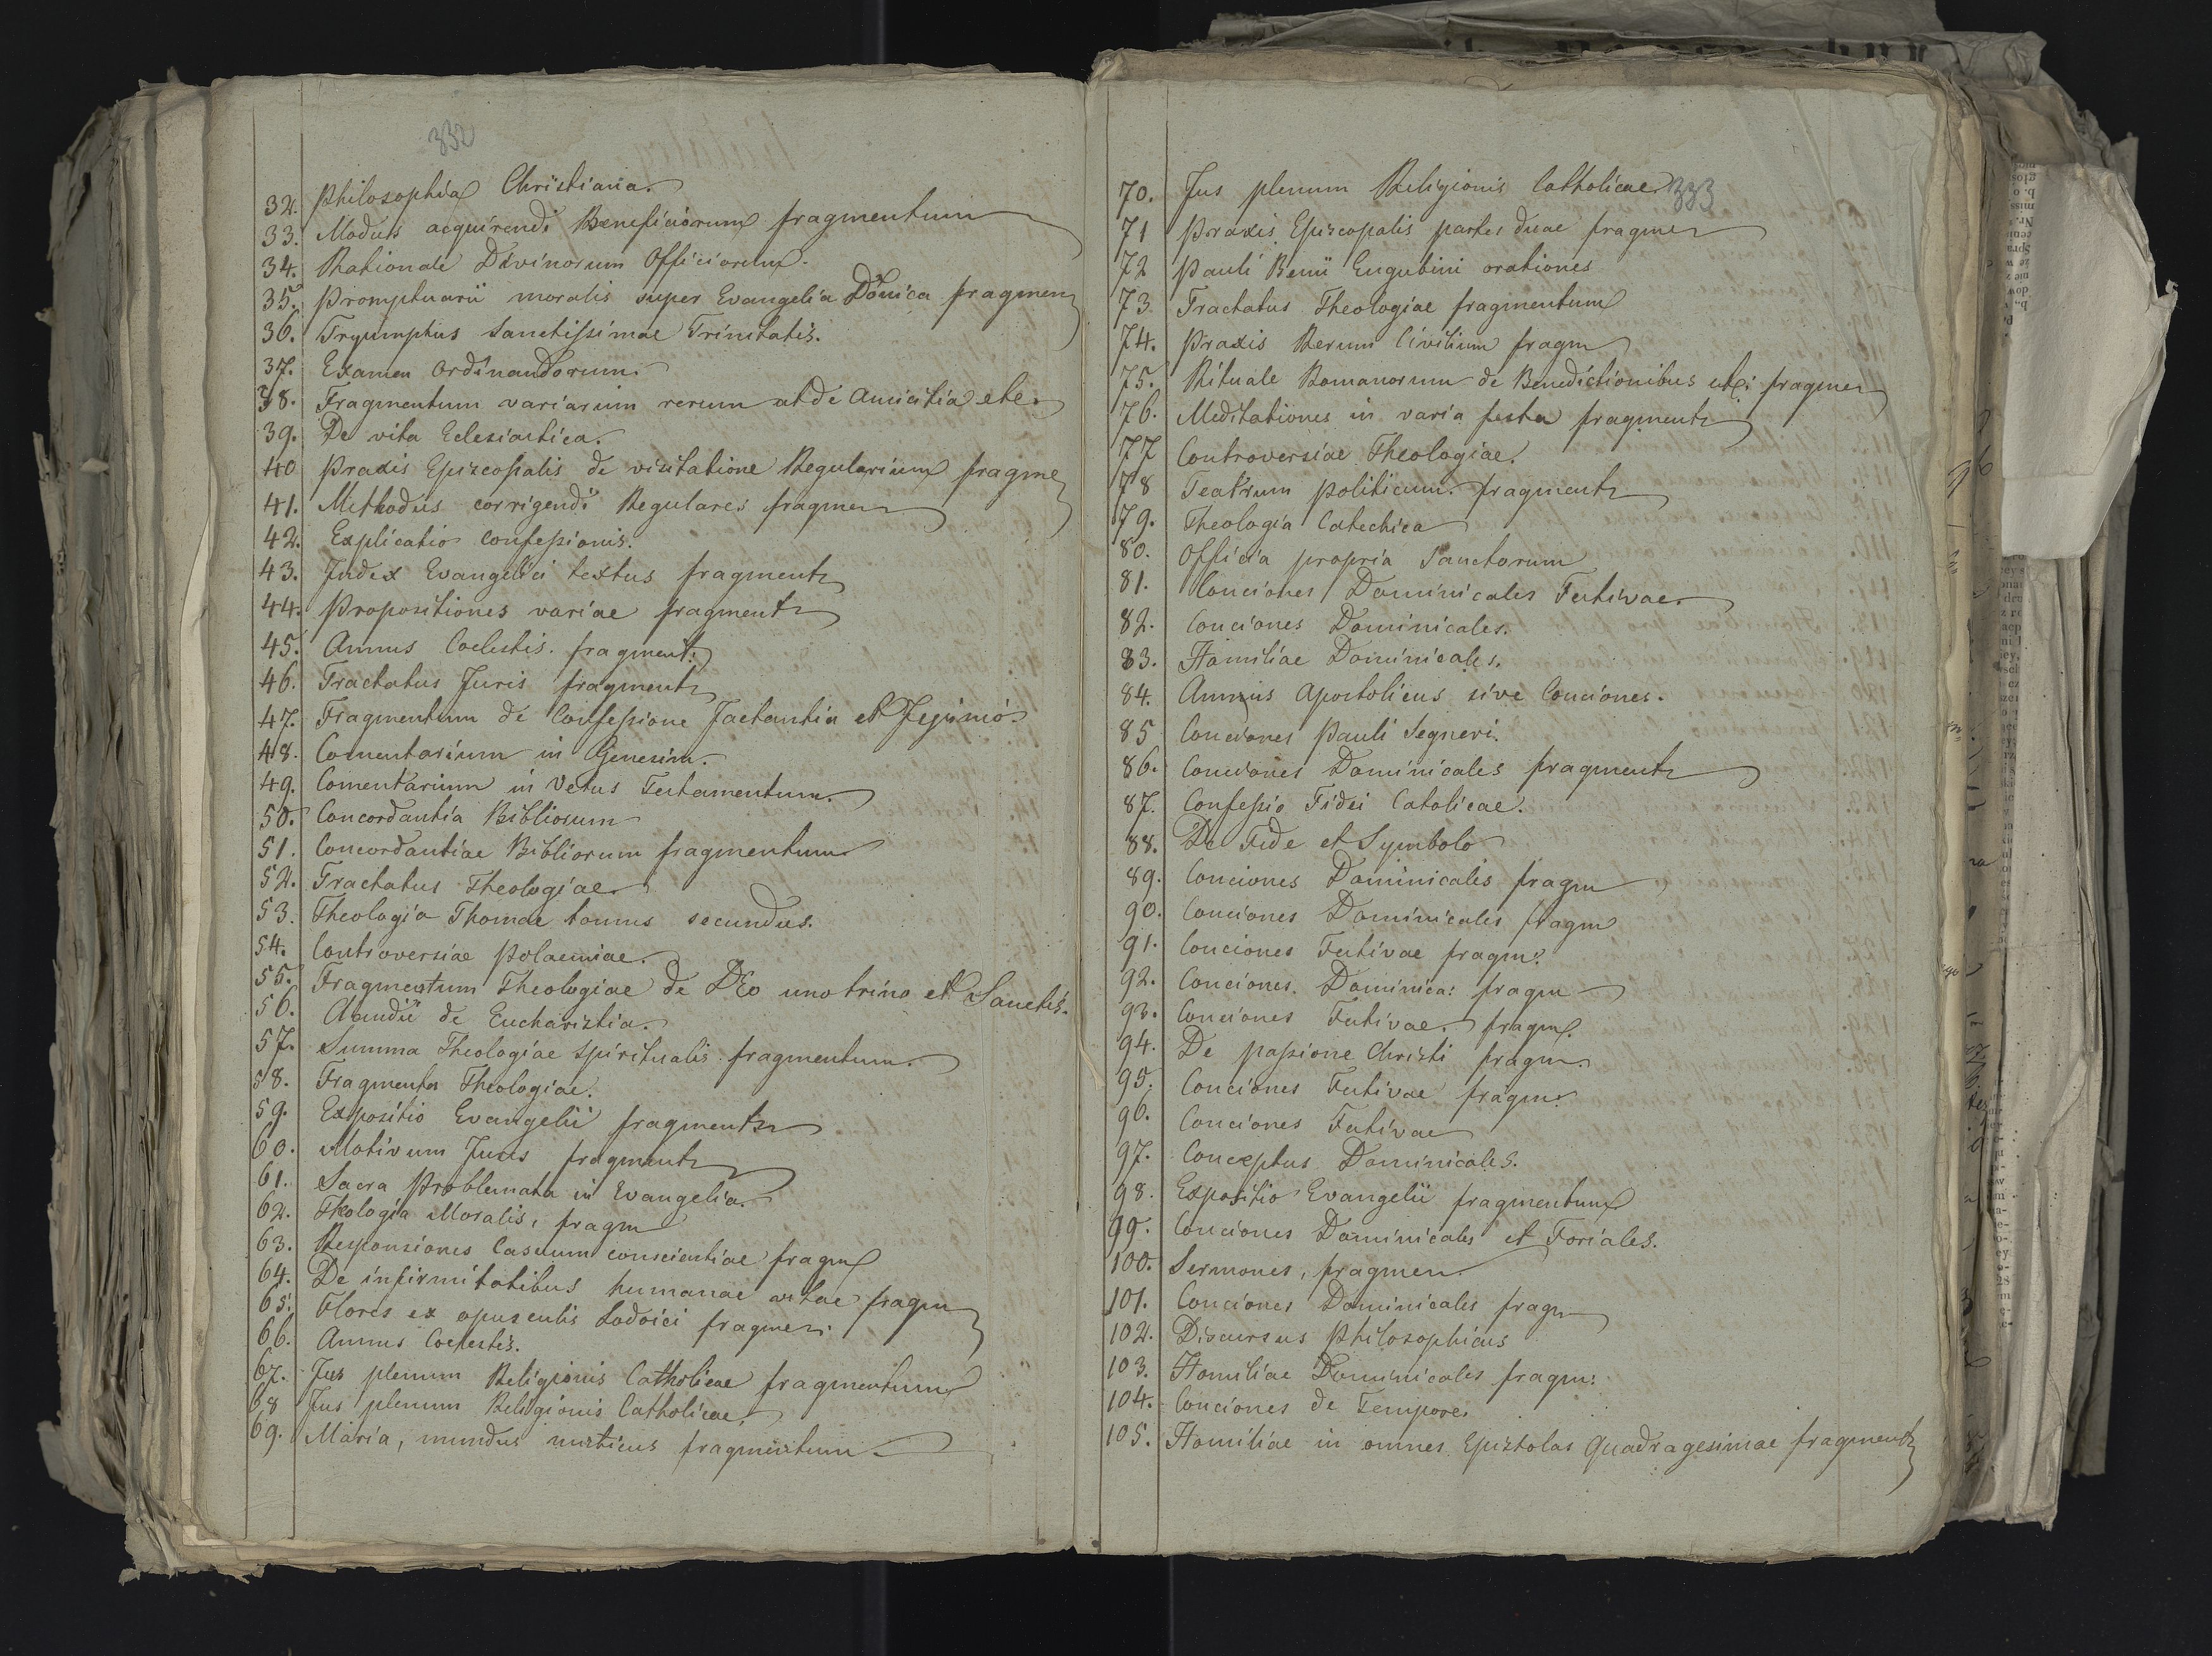 332
32. Philosophia Christiana.
33. Modus acquirendi Beneficiorum fragmentum
34. Rationale Divinorum Officiorum.
35. Promptuarii moralis super Evangelia Donica fragmen
36. Tryumphus Sanctissimae Trinitatis.
37. Examen Ordinandorum.
38. Fragmentum variarum rerum at de Amicitia etc.
39. De vita Eclesiastica.
40 Praxis Episcopalis de visitatione Regularium fragme
41. Methodus corrigendi Regulares fragmen
42. Explicatio confessionis.
43. Index Evangelici textus fragment
44. Propositiones variae fragment
45. Annus Coelestis. fragment:
46. Tractatus Juris fragment
47. Fragmentum de Confessione Jactantia et Jejunio.
48. Comentarium in Genesim.
49. Comentarium in Vetus Testamentum.
50. Concordantia Bibliorum
51. Concordantiae Bibliorum fragmentum
52. Tractatus Theologiae.
53. Theologia Thomae tomus secundus.
54. Controversiae Polaemiae.
55. Fragmentum Theologiae de DEo uno trino et Sanctis.
56. de Eucharistia.
57. Summa Theologiae Spiritualis fragmentum.
58. Fragmenta Theologiae.
59. Expositio Evangelii fragment
60. Motivum Juris fragment
61. Sacra Problemata in Evangelia.
62. Theologia Moralis, fragm
63. Responsiones Casuum conscientiae fragm
64. De infirmitatibus humanae vitae fragm
65. Flores ex opusculis Lodoici fragmen.
66. Annus Coelestis.
67. Jus plenum Religionis Catholicae fragmentum
68 Jus plenum Religionis Catholicae.
69. Maria, mundus misticus fragmentum
333
70. Jus plenum Religionis Catholicae
71 Praxis Episcopalis partes duae fragmen
72 Pauli Benii Eugubini orationes
73 Tractatus Theologiae fragmentum
74. Praxis Rerum Civilium fragm
75. Rituale Romanorum de Benedictionibus etc: fragmen
76. Meditationes in varia festa fragment
77 Controversiae Theologiae.
78 Teatrum politicum. fragment
79. Theologia Catechica
80. Officia propria Sanctorum
81. Conciones Dominicales Festivae.
82. Conciones Dominicales.
83. Homiliae Dominicales.
84. Annus Apostolicus sive Conciones.
85 Conciones Pauli Segneri.
86. Conciones Dominicales fragment
87. Confessio Fidei Catolicae.
88. De Fide et Symbolo
89. Conciones Dominicales fragm
90. Conciones Dominicales fragm
91. Conciones Festivae fragm:
92. Conciones. Dominica: fragm
93. Conciones Festivae. fragm.
94. De passione Christi fragm.
95. Conciones Festivae fragm:
96. Conciones Festivae
97. Conceptus Dominicales.
98. Expositio Evangelii fragmentum
99. Conciones Dominicales et Foriales.
100. Sermones, fragmen.
101. Conciones Dominicales fragm
102. Discursus Philosophicus
103. Homiliae Dominicales fragm:
104. Conciones de Tempore.
105. Homiliae in omnes Epistolas Quadragesimae fragment